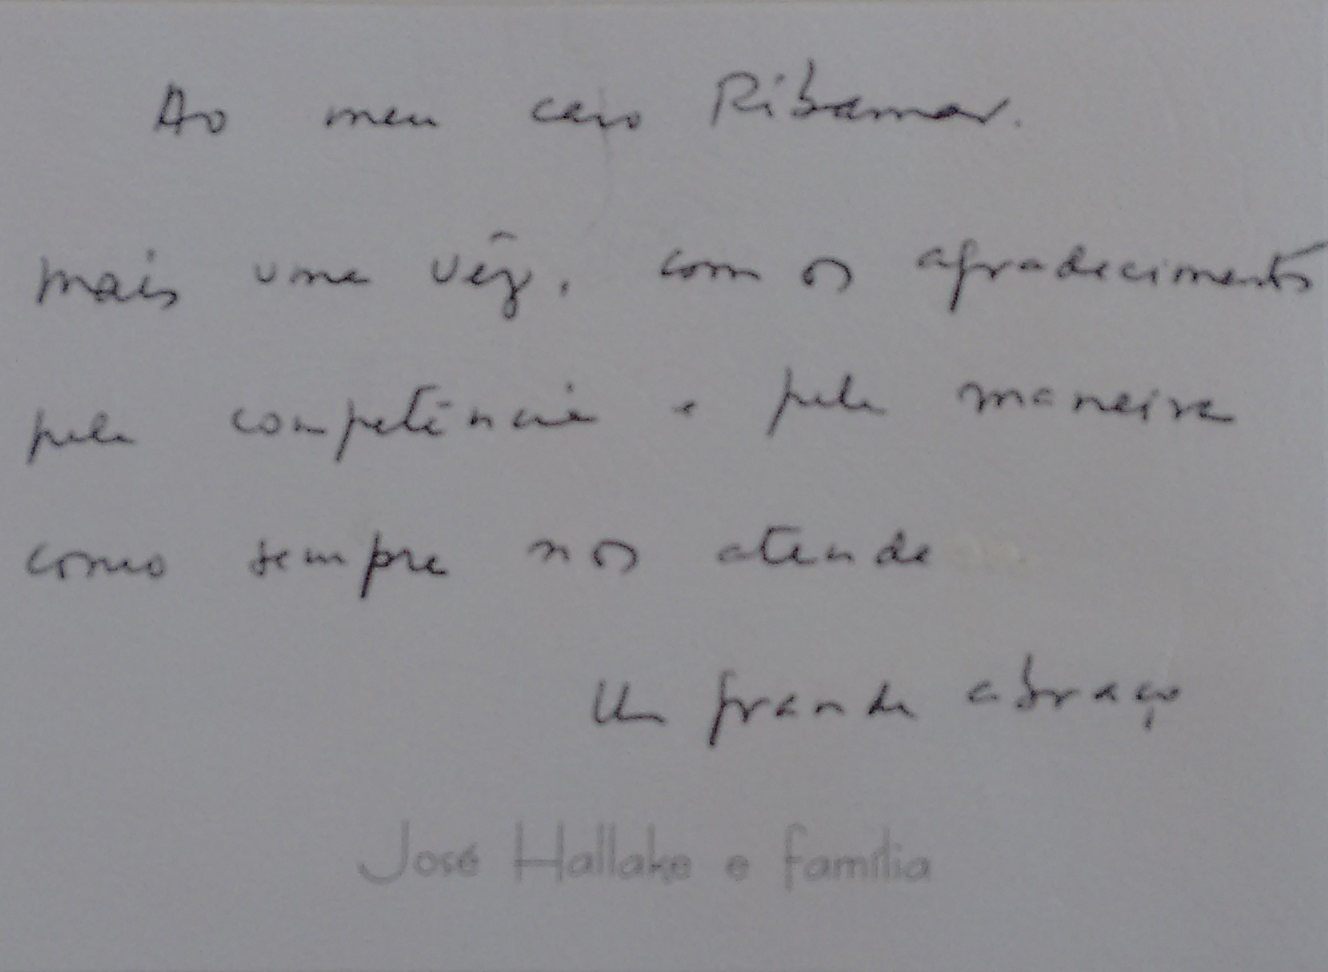 Ao meu caro Ribamar.
mais uma vêz, com os agradecimentos
pela competência e pela maneira
como sempre nos atende
Um grande abraço
José Hallake e família